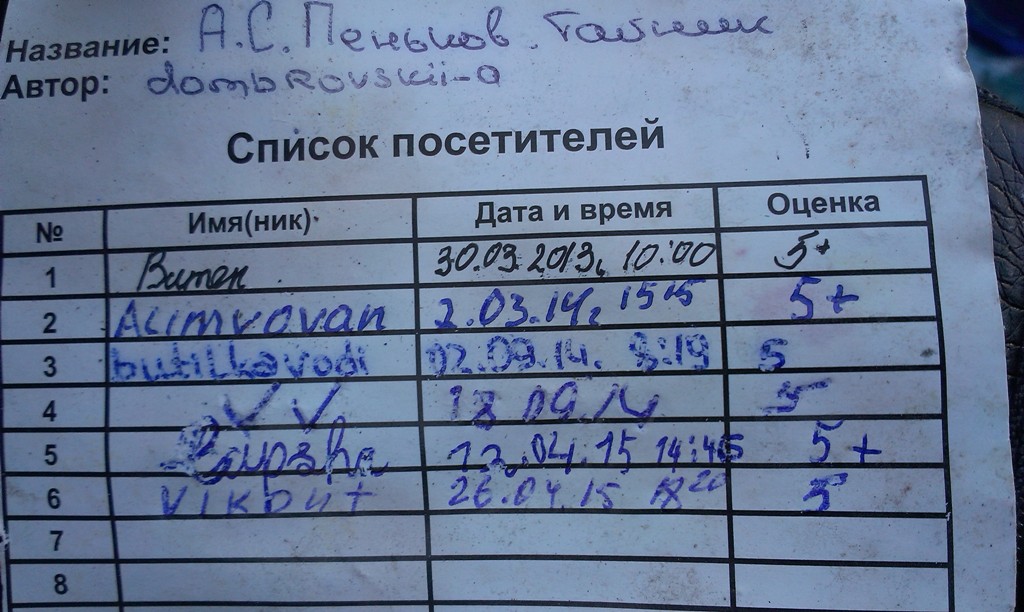 Название: А.С. Пеньков. Тайник
Автор: dombrovskii-a
Список посетителей
№ Имя(ник) Дата и время Оценка
1 Витек 30.03.2013г. 10:00 5+
2 Acimvovan 2.03.14г 15 15 5+
3 butilkavodi 02.09.14. 8:19 5
4 V V 13 09 14 5
5 Lapsha 12.04.15 14:45 5+
6 26.04.15 18 20 5
7
8